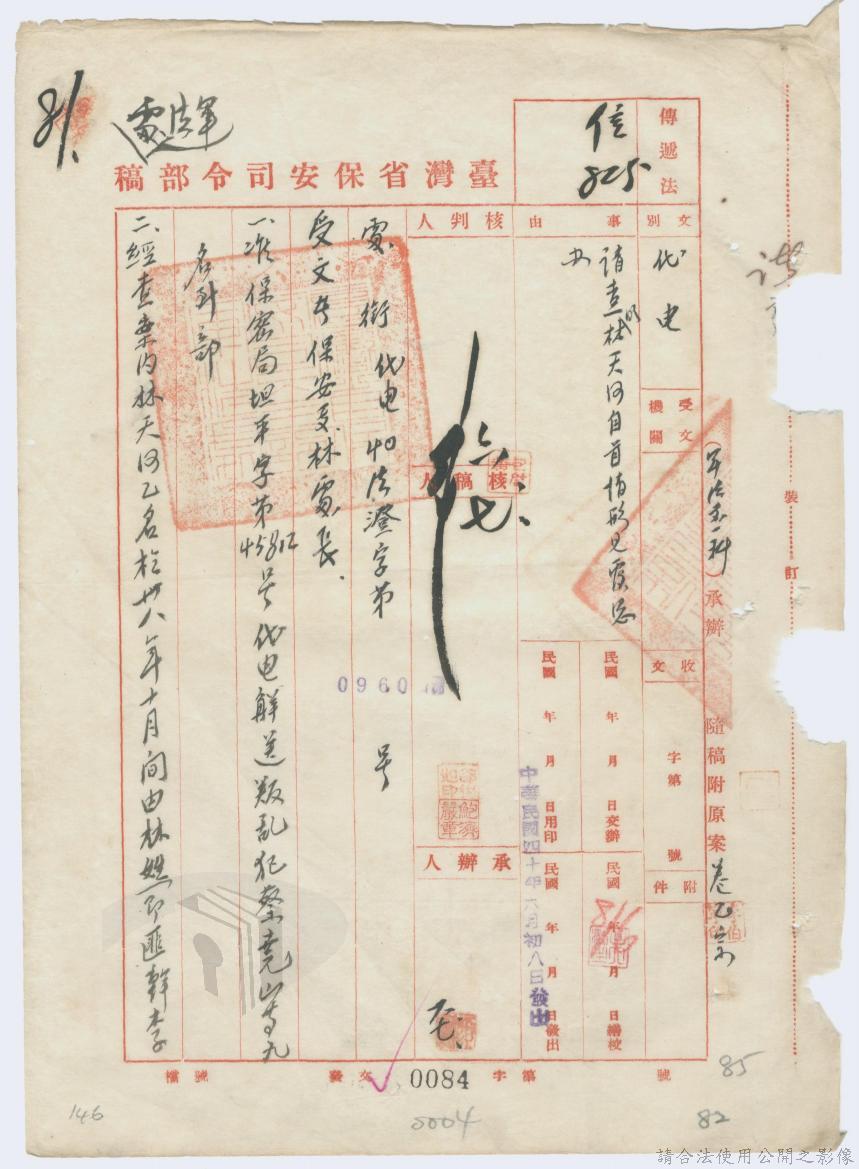 軍法處
8/1
臺灣省保安司令部稿
傳遞法
信
825
文別
代電
受文機關
收文
字第 號
附件
事由
請查明林天河自首情形見復為
民國 年 月 日交辦
民國 年 月 日繕校
民國 年 月 日用印
民國 年 月 日發出
中華民國四十年六月初八日發出
核判人
核稿人
六、七、
承辦人
電 銜 代電 40 法澄字第 號
0960
受文者保安處林處長
一、准保密局坦平字第 號代電解送叛亂犯蔡堯山等九
名到部
二、經查案內林天河乙名於卅八年十月間由林 即匪幹李
(軍法處一科)承辦
隨稿附原案卷乙宗
裝
訂
檔 號
發文 字第 號
0084
146
0004
82
85
請合法使用公開之影像